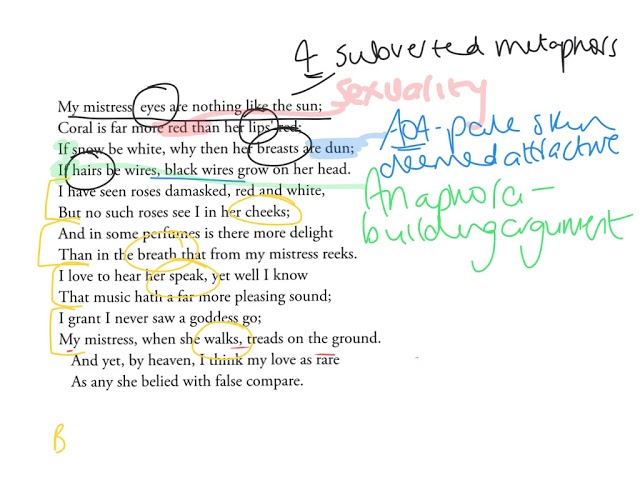 4 subverted metaphors
sexuality
My mistress' eyes are nothing like the sun;
Coral is far more red than her lips' red;
If snow be white, why then her breasts are dun;
If hairs be wires, black wires grow on her head.
I have seen roses damasked, red and white,
But no such roses see I in her cheeks;
And in some perfumes is there more delight
Than in the breath that from my mistress reeks.
I love to hear her speak, yet well I know
That music hath a far more pleasing sound;
I grant I never saw a goddess go;
My mistress, when she walks, treads on the ground.
And yet, by heaven, I think my love as rare
As any she belied with false compare.
- pale skin
deemed attractive
Anaphora -
building argument
B